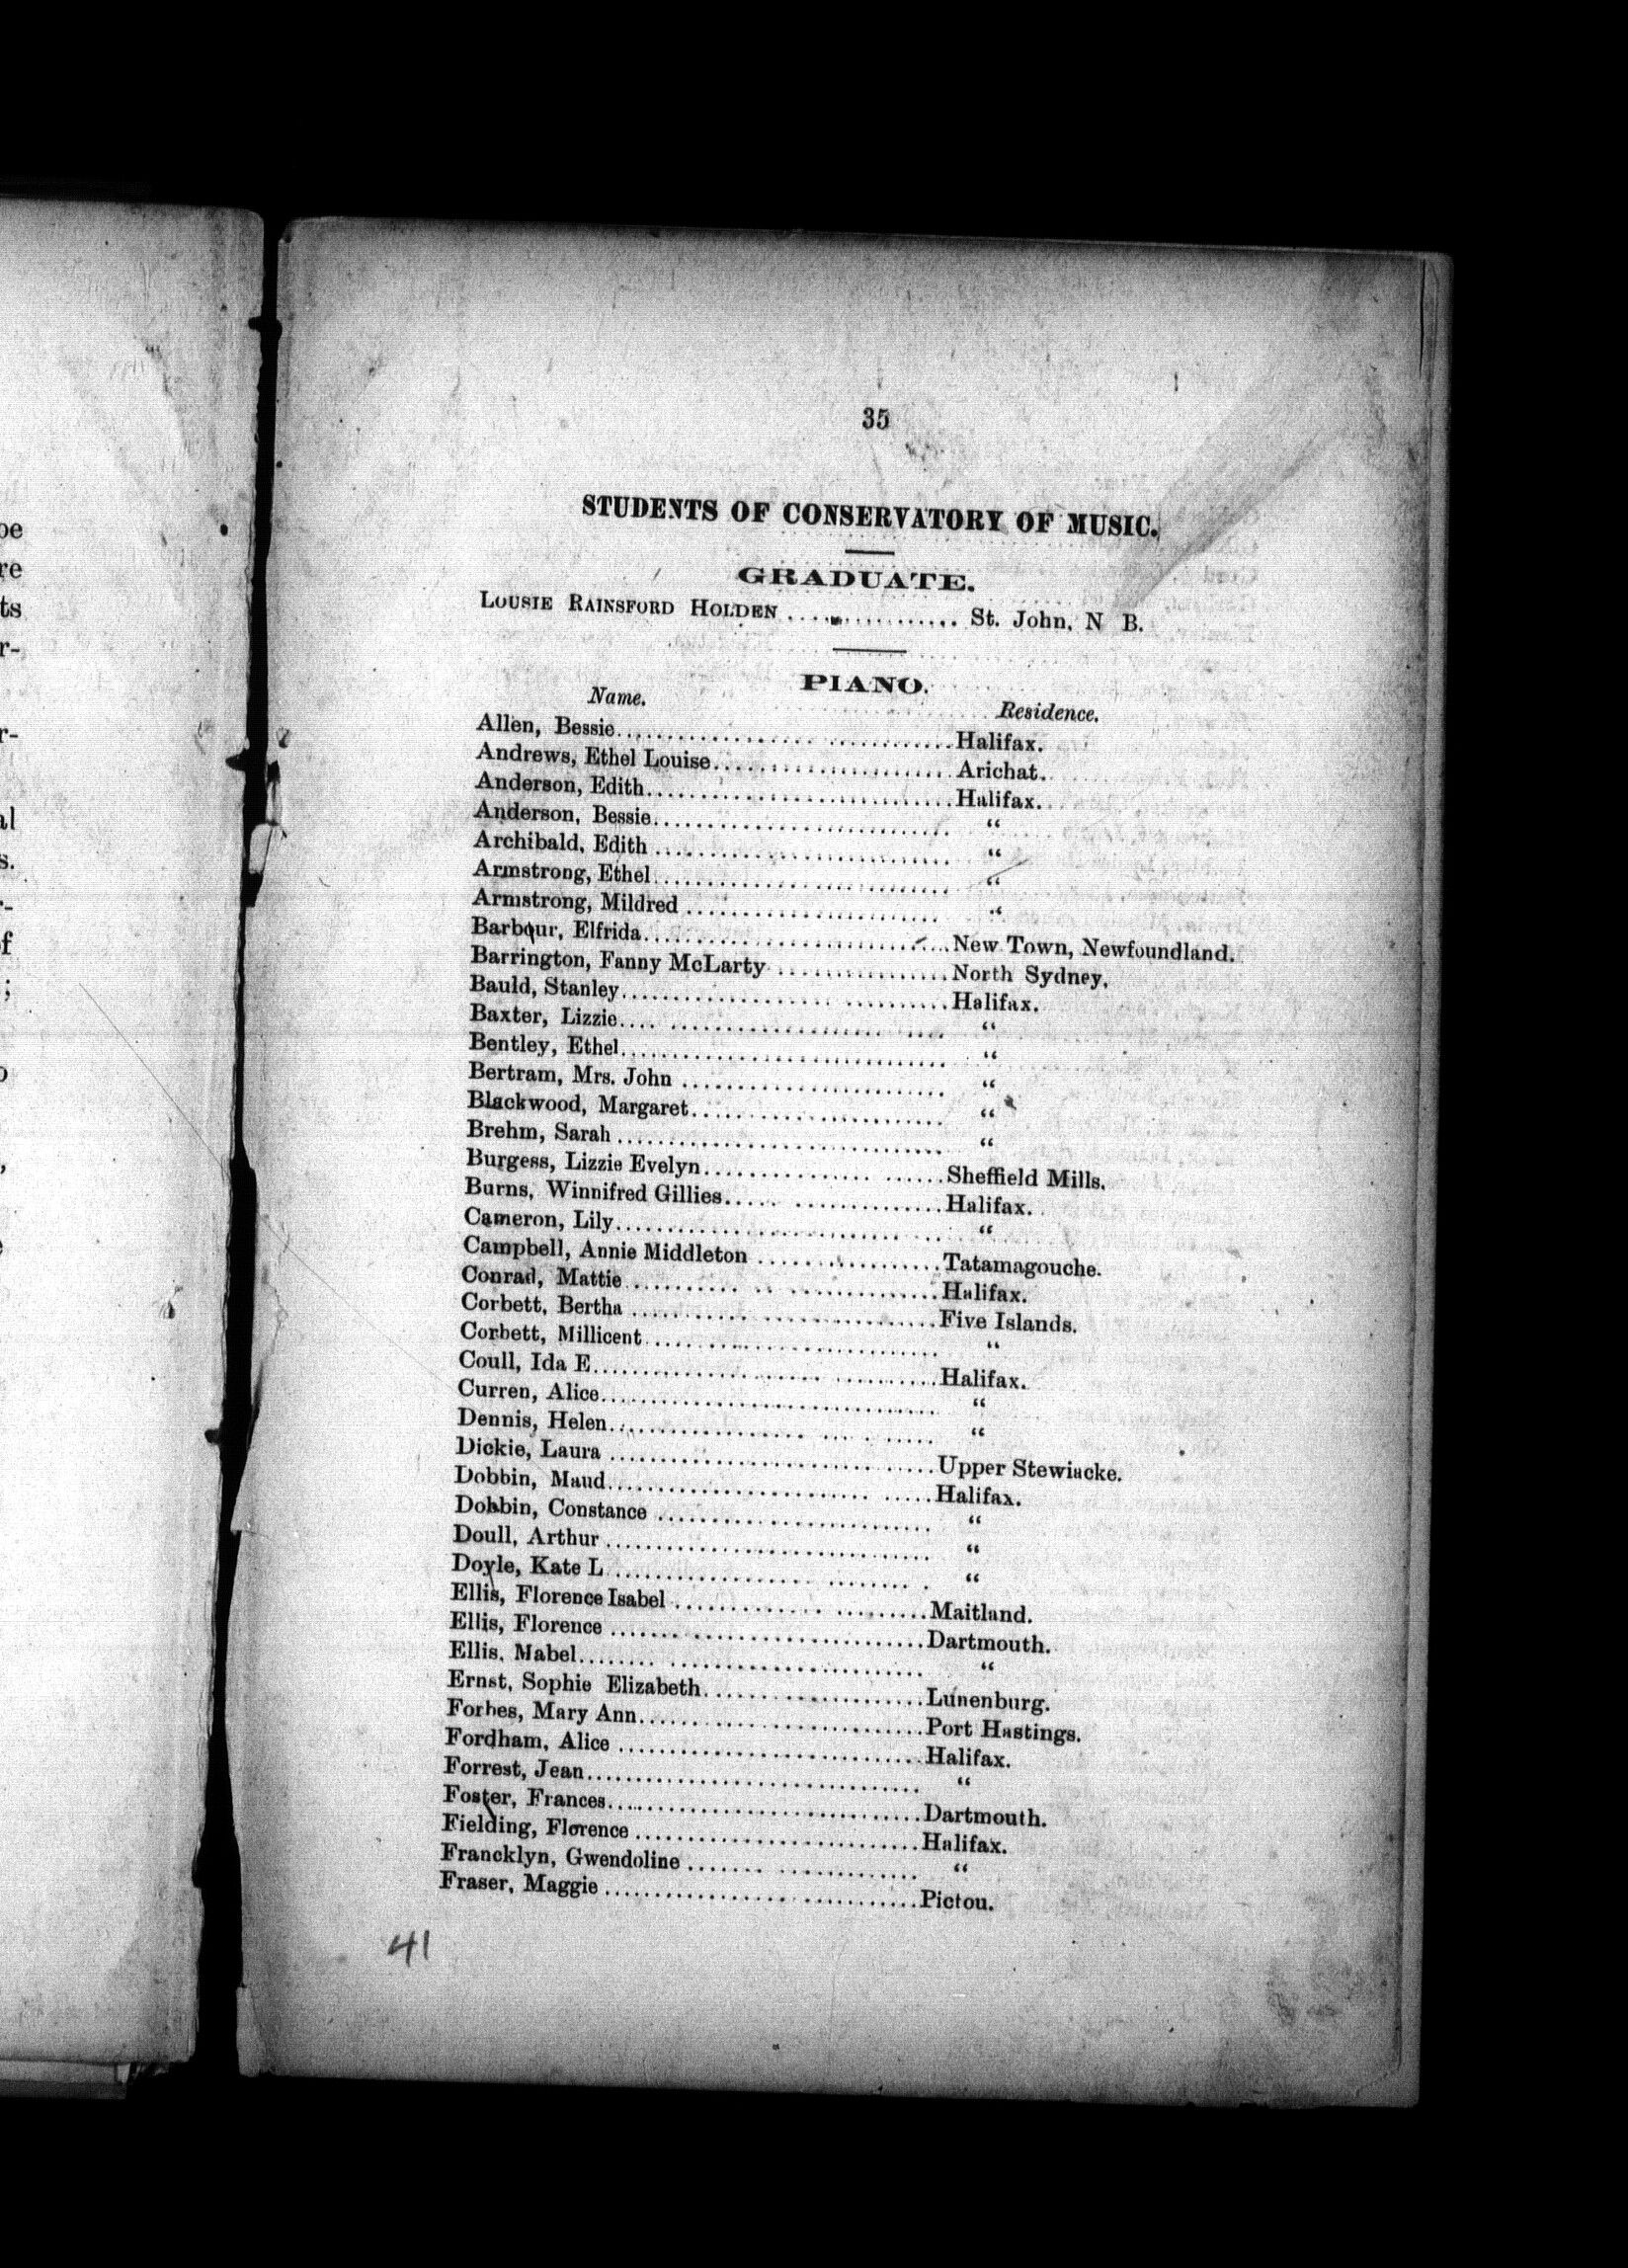 35
STUDENTS OF CONSERVATORY OF MUSIC.
GRADUATE.
LOUSIE RAINSFORD HOLDEN ................ St. John, N B.
PIANO.
Name. Residence.
Allen, Bessie..............................Halifax.
Andrews, Ethel Louise......................Arichat.
Anderson, Edith............................Halifax.
Anderson, Bessie........................... “
Archibald, Edith .......................... “
Armstrong, Ethel........................... “
Armstrong, Mildred ........................ “
Barbour, Elfrida...........................New Town, Newfoundland.
Barrington, Fanny McLarty ................North Sydney.
Bauld, Stanley.............................Halifax.
Baxter, Lizzie............................. “
Bentley, Ethel............................. “
Bertram, Mrs. John ........................ “
Blackwood, Margaret........................ “
Brehm, Sarah .............................. “
Burgess, Lizzie Evelyn.....................Sheffield Mills.
Burns, Winnifred Gillies...................Halifax.
Cameron, Lily.............................. “
Campbell, Annie Middleton .................Tatamagouche.
Conrad, Mattie.............................Halifax.
Corbett, Bertha ...........................Five Islands.
Corbett, Millicent......................... “
Coull, Ida E...............................Halifax.
Curren, Alice.............................. “
Dennis, Helen.............................. “
Dickie, Laura .............................Upper Stewiacke.
Dobbin, Maud...............................Halifax.
Dobbin, Constance ......................... “
Doull, Arthur ............................. “
Doyle, Kate L.............................. “
Ellis, Florence Isabel ....................Maitland.
Ellis, Florence ...........................Dartmouth.
Ellis, Mabel............................... “
Ernst, Sophie Elizabeth....................Lunenburg.
Forbes, Mary Ann...........................Port Hastings.
Fordham, Alice ............................Halifax.
Forrest, Jean.............................. “
Foster, Frances............................Dartmouth.
Fielding, Florence ........................Halifax.
Francklyn, Gwendoline ..................... “
Fraser, Maggie ............................Pictou.
41